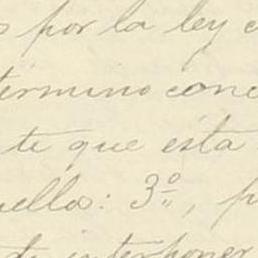 por la ley
término conc
te que esta
uello: 3º, p
de interponer